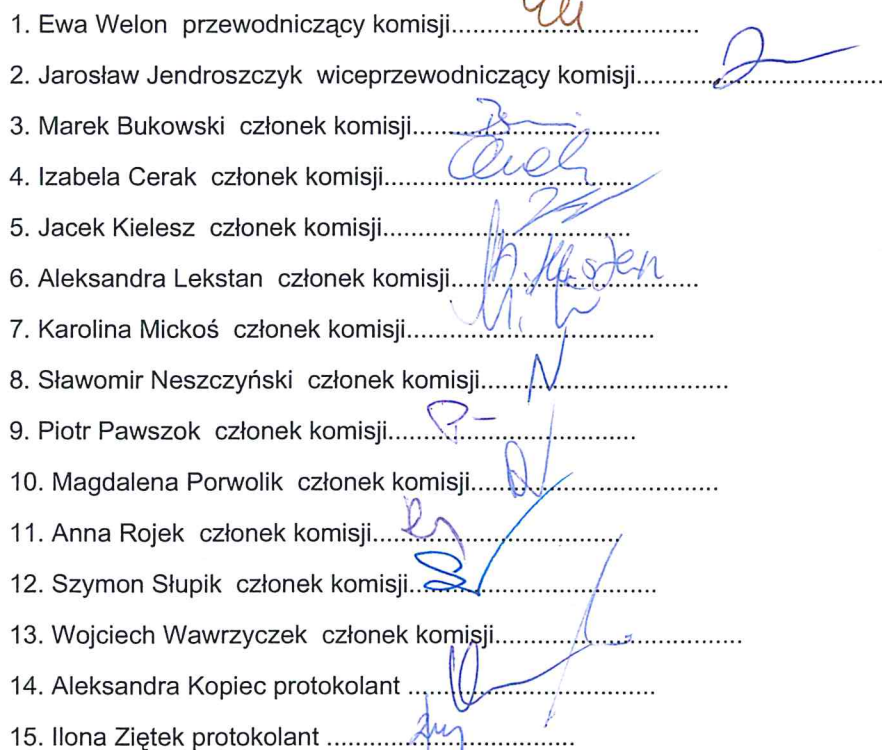 1. Ewa Welon przewodniczący komisji..................................
2. Jarosław Jendroszczyk wiceprzewodniczący komisji..................................
3. Marek Bukowski członek komisji..................................
4. Izabela Cerak członek komisji..................................
5. Jacek Kielesz członek komisji..................................
6. Aleksandra Lekstan członek komisji..................................
7. Karolina Mickoś członek komisji..................................
8. Sławomir Neszczyński członek komisji..................................
9. Piotr Pawszok członek komisji..................................
10. Magdalena Porwolik członek komisji..................................
11. Anna Rojek członek komisji..................................
12. Szymon Słupik członek komisji..................................
13. Wojciech Wawrzyczek członek komisji..................................
14. Aleksandra Kopiec protokolant ..................................
15. Ilona Ziętek protokolant ..................................